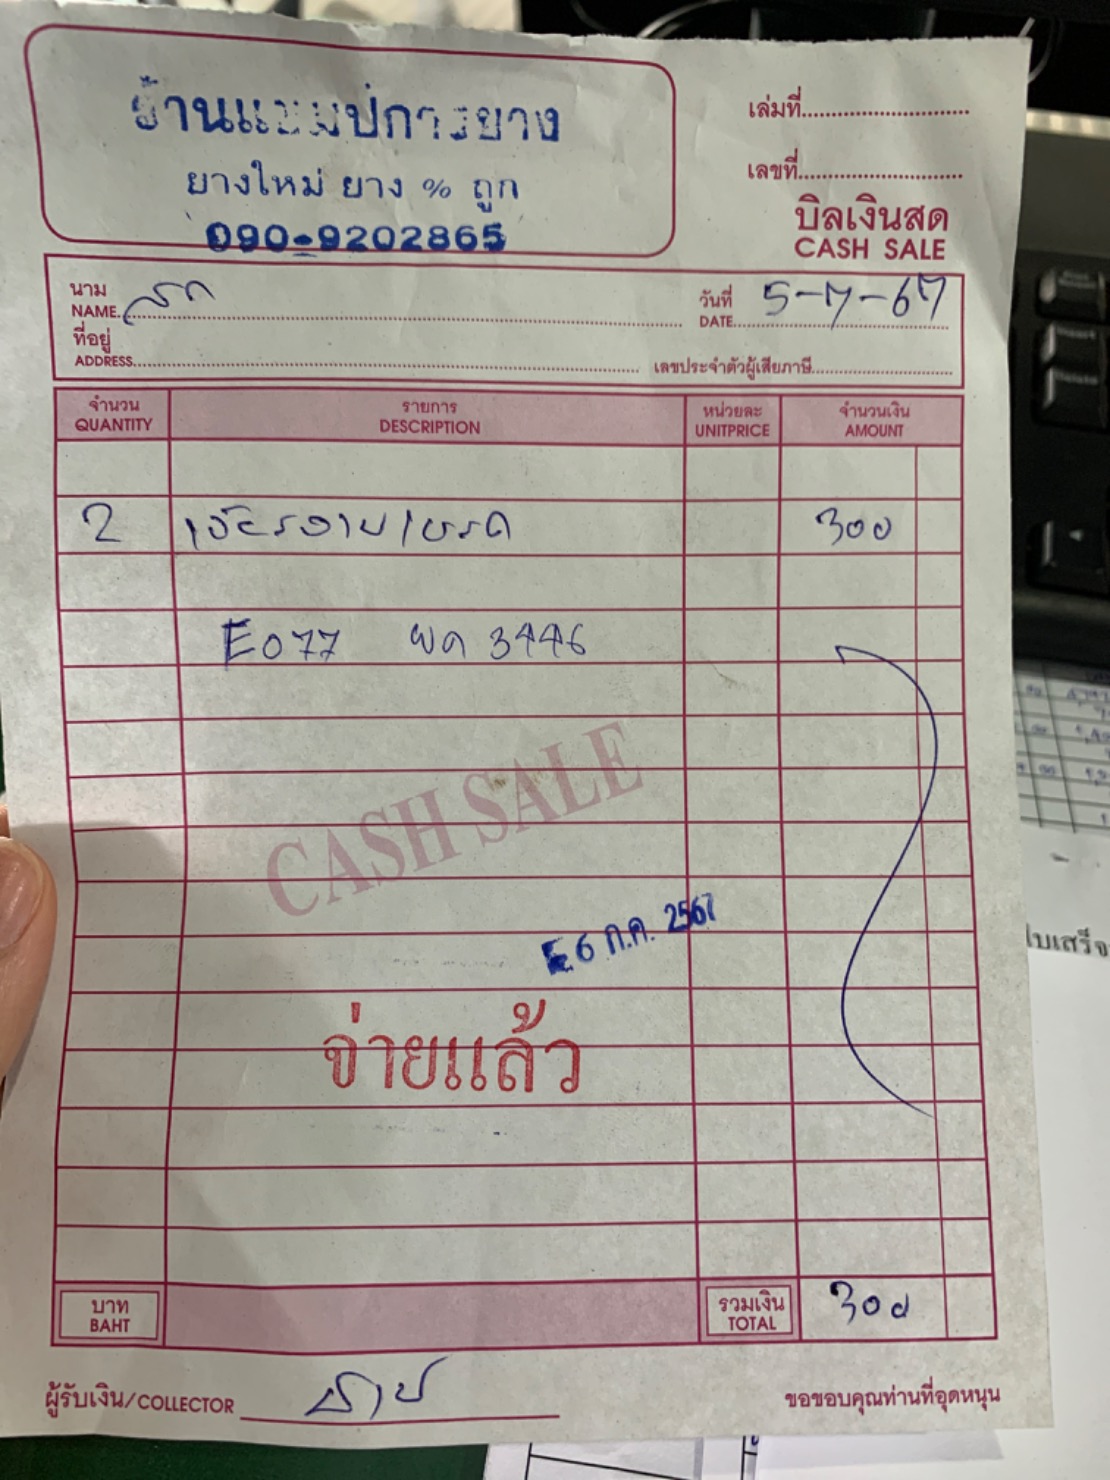 ร้านแชมป์การยาง
ยางใหม่ ยาง % ถูก
090-9202865
เล่มที่
เลขที่
บิลเงินสด
CASH SALE
นาม
NAME
วันที่ 5-7-67
DATE
ที่อยู่
ADDRESS
เลขประจำตัวผู้เสียภาษี
จำนวน รายการ หน่วยละ จำนวนเงิน
QUANTITY DESCRIPTION UNITPRICE AMOUNT
2 300
E077 ผด 3446
CASH SALE
E6 ก.ค. 2567
จ่ายแล้ว
บาท
BAHT
รวมเงิน 300
TOTAL
ผู้รับเงิน/COLLECTOR
ขอขอบคุณท่านที่อุดหนุน
ใบเสร็จ